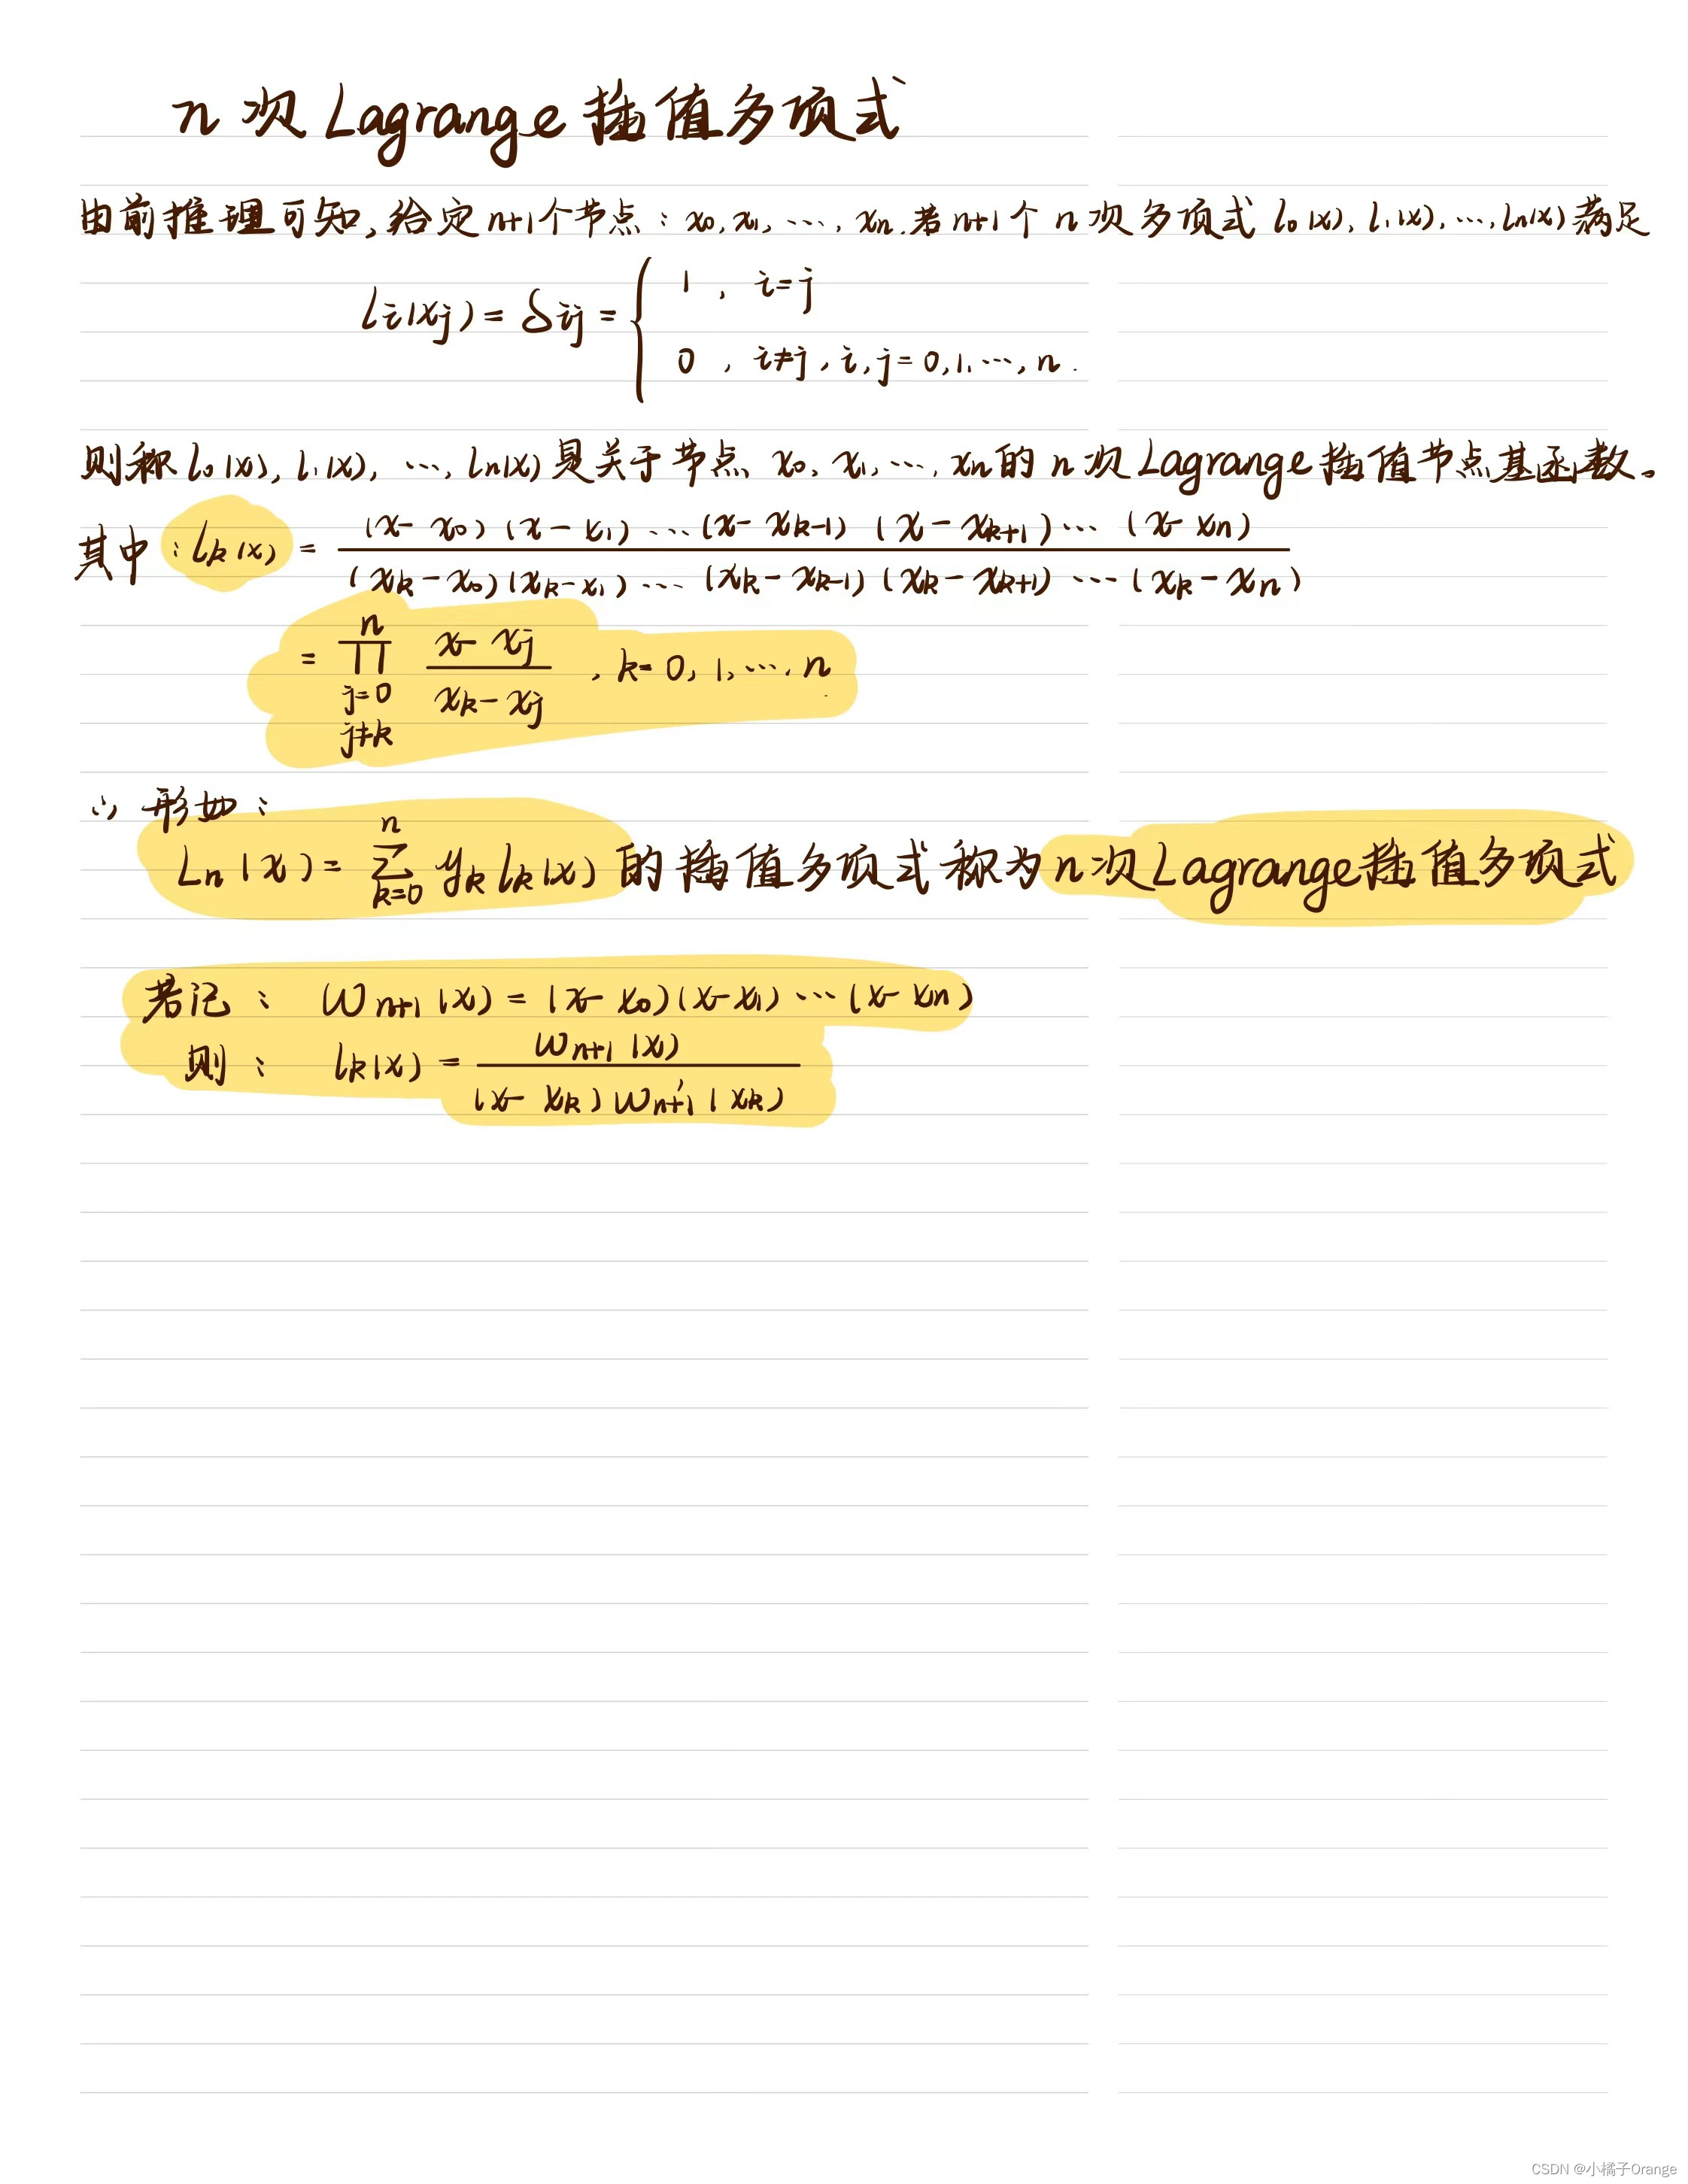 n次Lagrange插值多项式
由前推理可知,给定n+1个节点:x₀,x₁,…,xₙ.若n+1个n次多项式l₀(x),l₁(x),…,lₙ(x)满足
lᵢ(xⱼ)=δᵢⱼ={ 1, i=j
0, i≠j, i,j=0,1,…,n.
则称l₀(x),l₁(x),…,lₙ(x)是关于节点x₀,x₁,…,xₙ的n次Lagrange插值节点基函数。
其中:lₖ(x)= (x-x₀)(x-x₁)…(x-xₖ₋₁)(x-xₖ₊₁)…(x-xₙ) / (xₖ-x₀)(xₖ-x₁)…(xₖ-xₖ₋₁)(xₖ-xₖ₊₁)…(xₖ-xₙ)
= ∏ (j=0, j≠k → n) (x-xⱼ)/(xₖ-xⱼ), k=0,1,…,n
∴ 形如:
Lₙ(x)= ∑ (k=0 → n) yₖlₖ(x) 的插值多项式称为n次Lagrange插值多项式
若记: ωₙ₊₁(x)=(x-x₀)(x-x₁)…(x-xₙ)
则: lₖ(x)= ωₙ₊₁(x) / (x-xₖ)ω'ₙ₊₁(xₖ)
CSDN @小橘子Orange